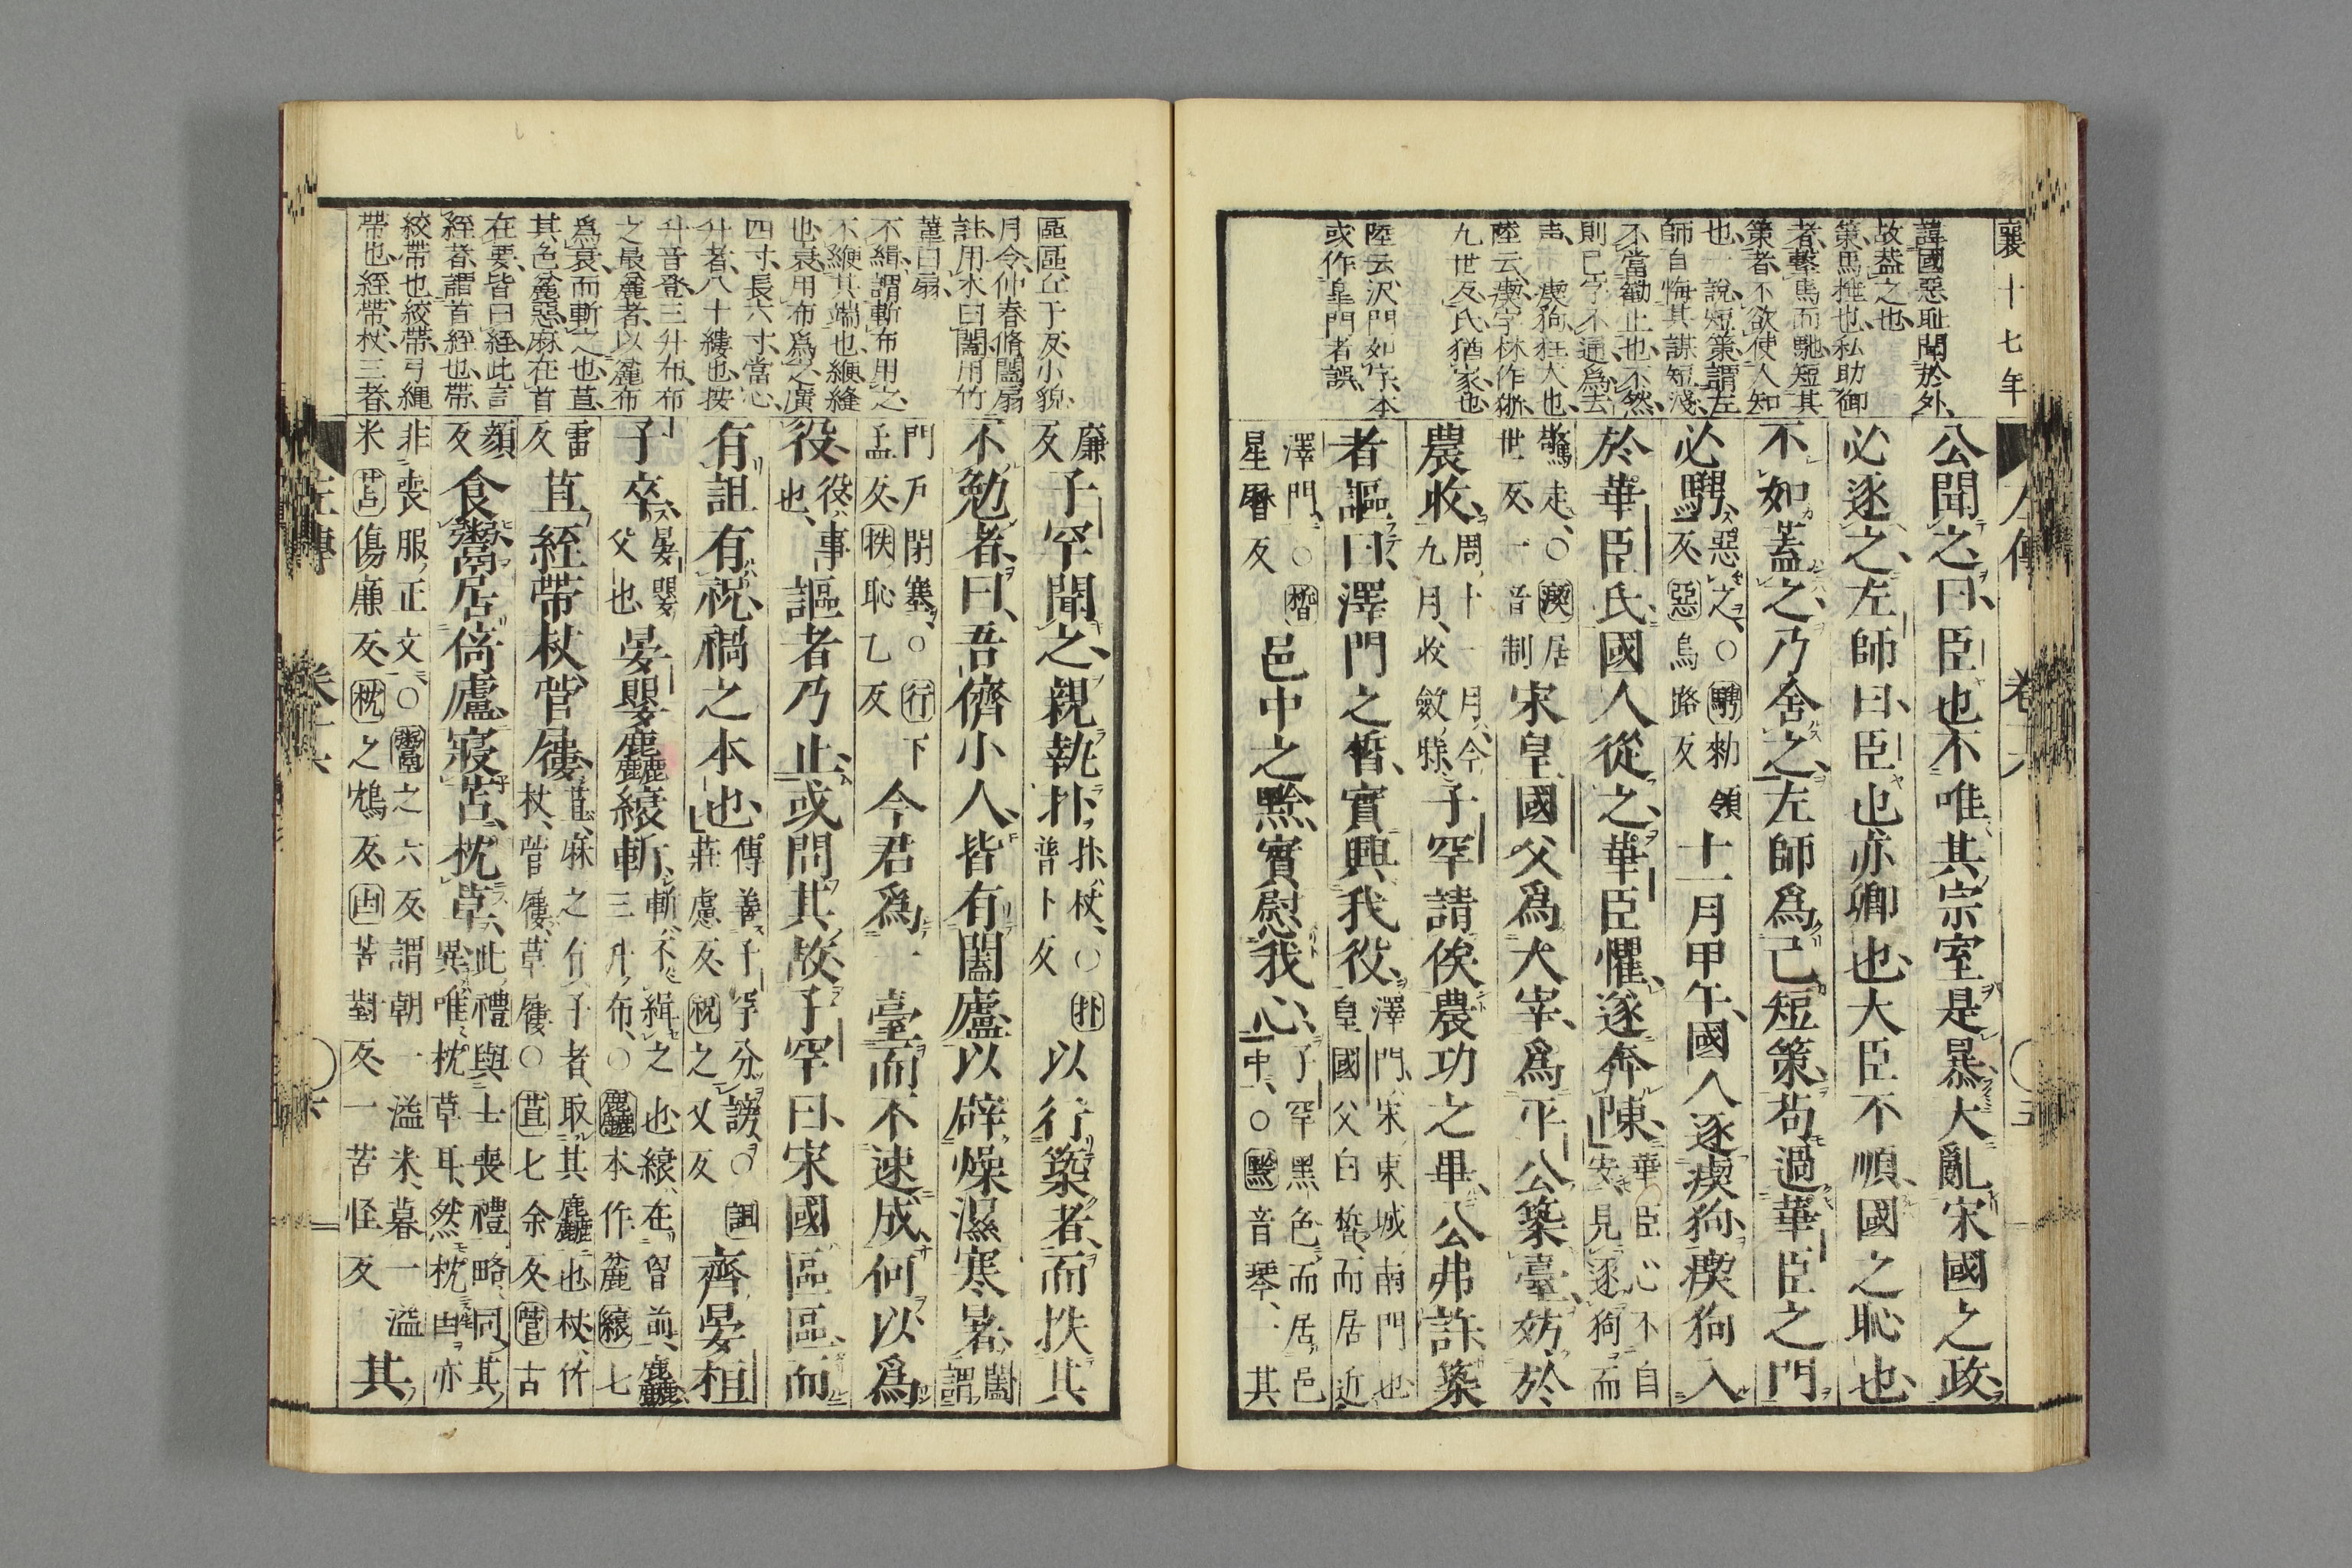 襄十七年
諱國惡耻聞於外
故葢之也
策馬搥也私助御
者擊馬而馳短其
策者不欲使人知
也一說短策謂左
師自悔其謀短淺
不當勸止也不然
則已字不通爲去
声 瘈狗狂犬也
陸云瘈字林作狾
九世反氏猶家也
陸云沢門如字本
或作皐門者誤
公聞之曰臣也不唯其宗室是暴大亂宋國之政
必逐之左師曰臣也亦卿也大臣不順國之恥也
不如蓋之乃舍之左師爲己短策苟過華臣之門
必騁惡之○騁勑領
反惡烏路反
十一月甲午國人逐瘈狗瘈狗入
於華臣氏國人從之華臣懼遂奔陳華臣心不自
安見逐狗而
驚走○瘈居
世反一音制
宋皇國父爲大宰爲平公築臺妨於
農收周十一月今
九月收斂
子罕請俟農功之畢公弗許築
者謳曰澤門之晳實興我役澤門宋東城南門也
皇國父白晳而居近
澤門○晳
星曆反
邑中之黔實慰我心子罕黑色而居邑
中○黔音琴其
區區丘于反小貌
月令仲春脩闔扇
註用木曰闔用竹
葦曰扇
不緶其端也緶縫
也衰用布爲之廣
四寸長六寸當心
升者八十縷也按
升音登三升布布
之最麄者以麄布
爲衰而斬之也苴
其色麄惡麻在首
在要皆曰絰此言
絰者謂首絰也帶
絞帶也絞帶弓縄
帶也絰帶杖三者
廉反
子罕聞之親執扑扑杖○扑
普卜反
以行築者而抶其
不勉者曰吾儕小人皆有闔廬以辟燥濕寒暑闔謂
門戶閉塞○行下
孟反抶恥乙反
今君爲一臺而不速成何以爲
役役事也
謳者乃止或問其故子罕曰宋國區區而
有詛有祝禍之本也傳善子罕分謗○詛
莊慮反祝之又反
齊晏桓
子卒晏嬰父也
晏嬰麤縗斬斬不緝之也縗在胷前麤
三升布○麤本作麄縗七
雷反
苴絰帶杖菅屨苴麻之有子者取其麤也杖竹
杖菅屨草屨○苴七余反菅古
顏反
食鬻居倚廬寢苫枕草此禮與士喪禮略同其
異唯枕草耳然枕凷亦
非喪服正文○鬻之六反謂朝一溢米暮一溢
米苫傷廉反枕之鴆反凷苦對反一苦怪反
其